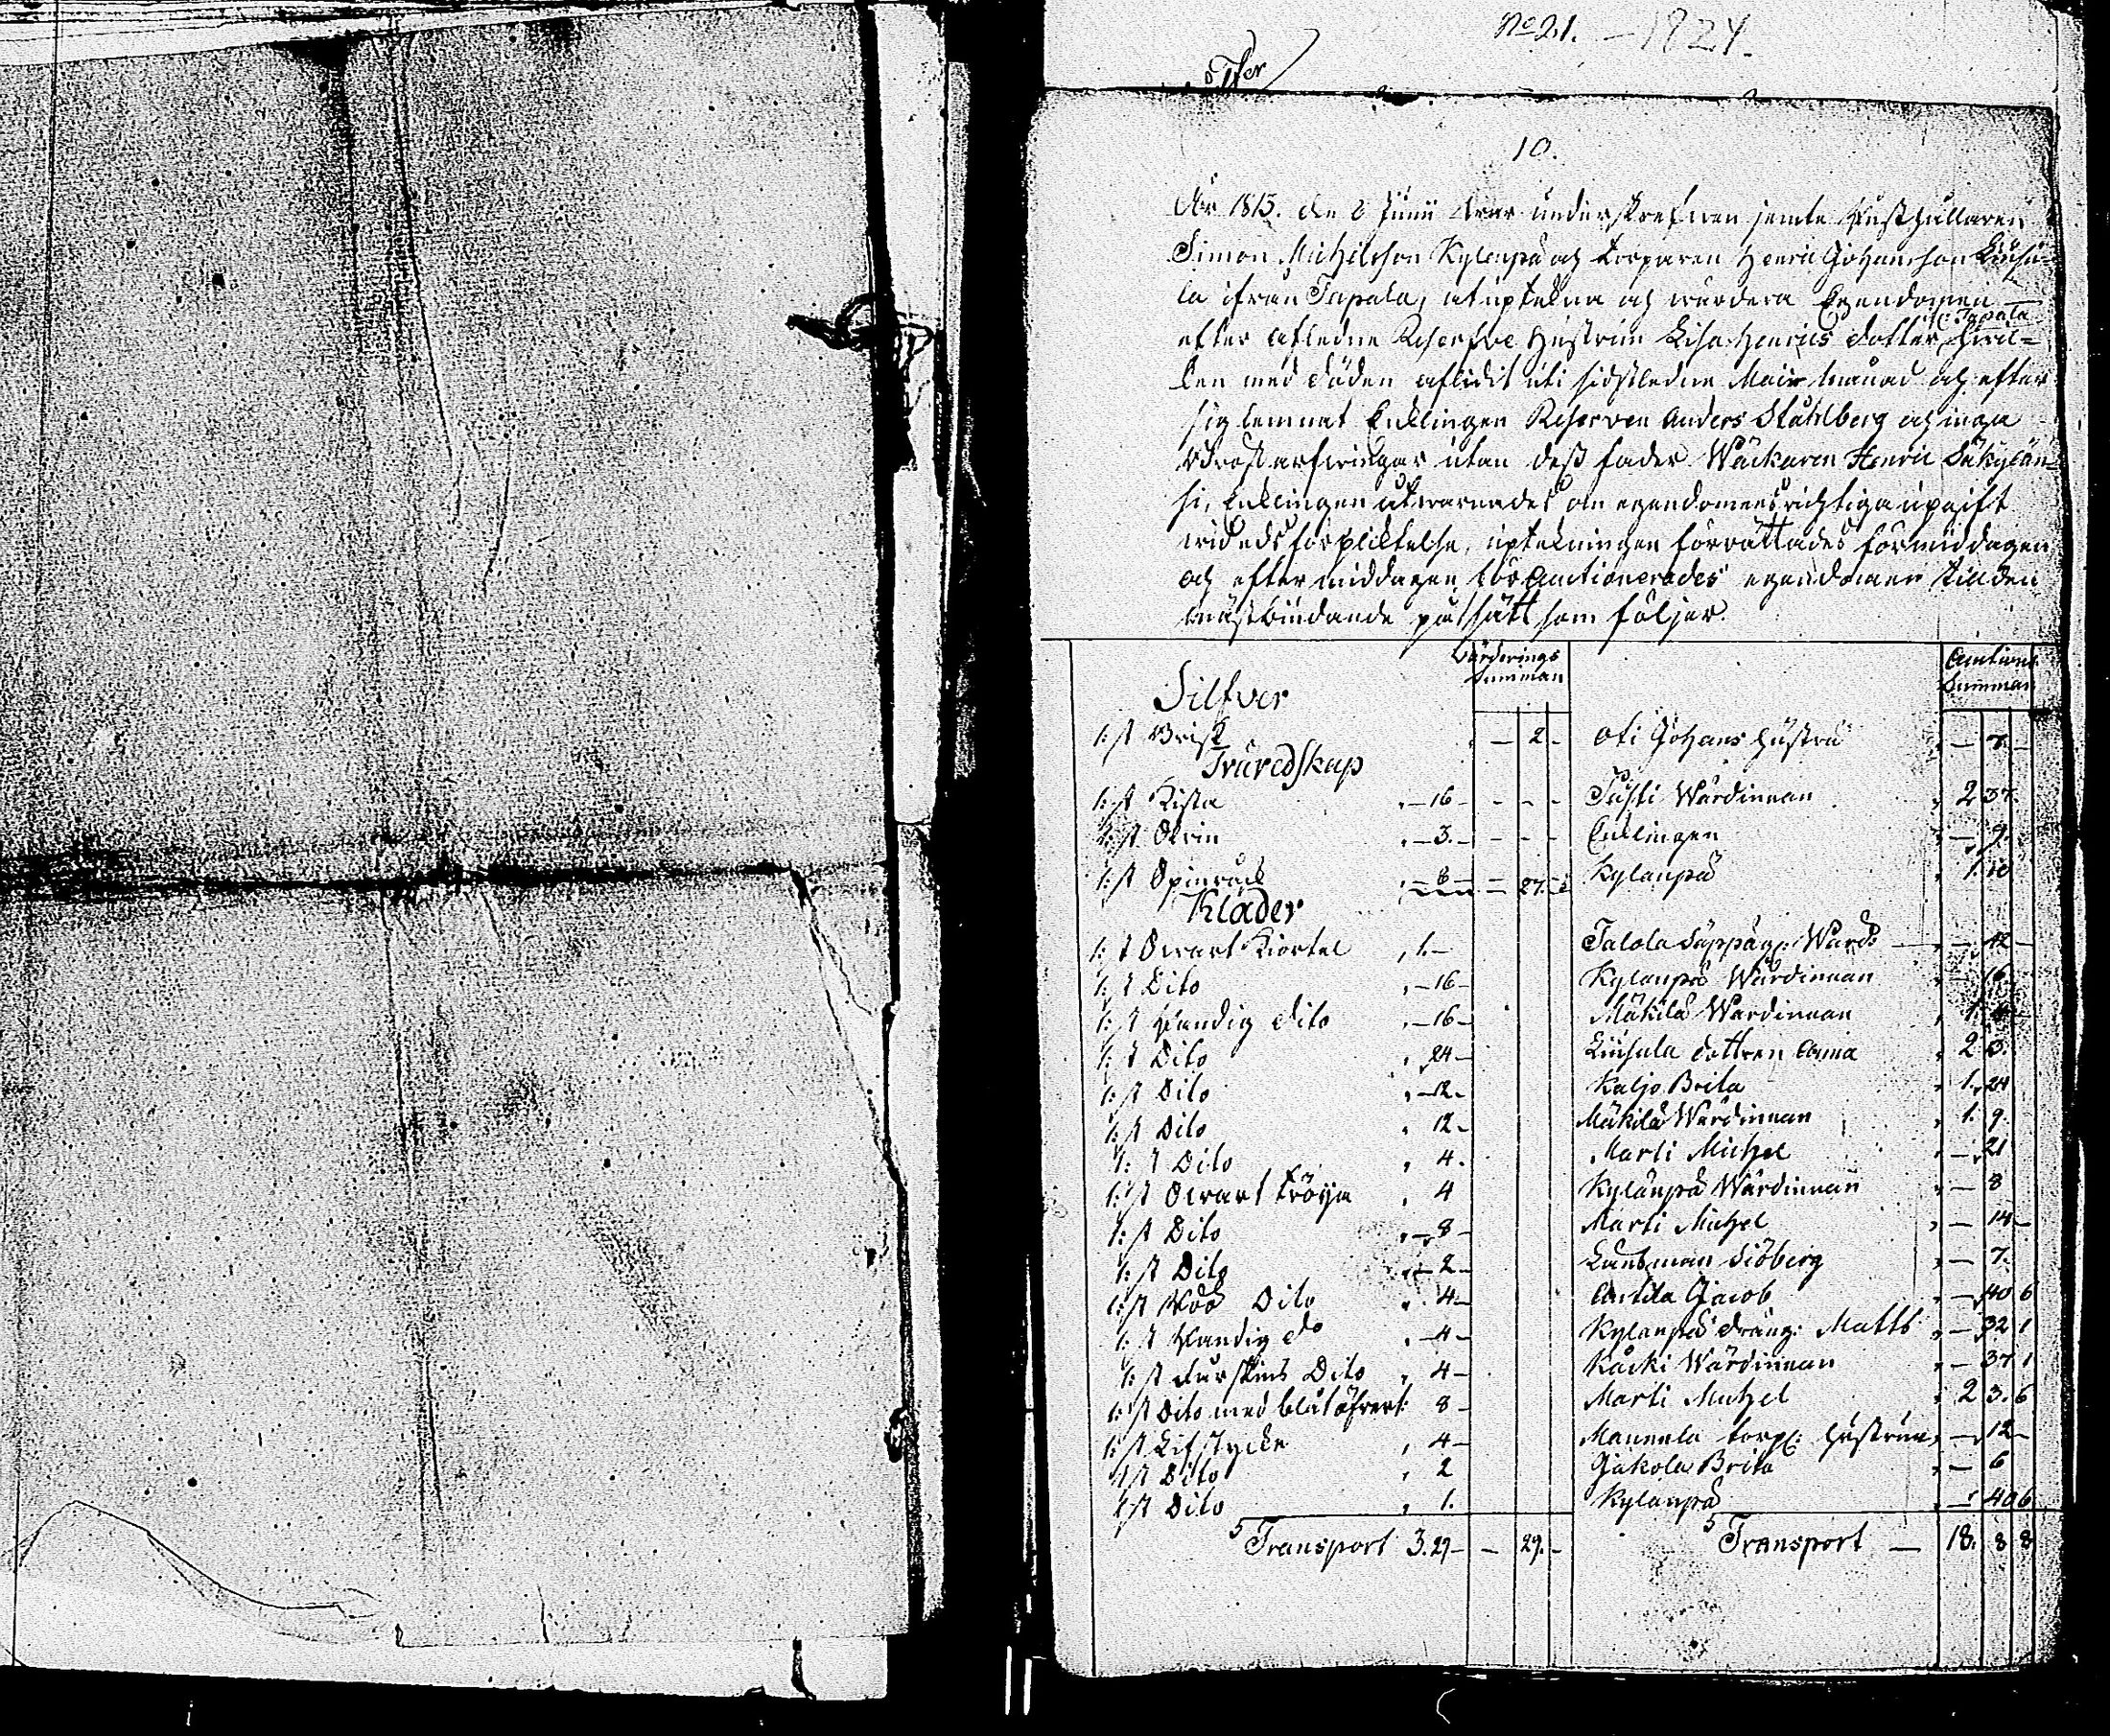 No 21. — 1824
10.
År 1813. den 2 Junii war underskrefwen jemte Rusthållaren
Simon Michelsson Kylenpä och torparen Henric Johansson Liusu=
la ifrån Tapala, at uptekna och wärdera Egendomen
efter afledne Reserfve Hustrun Lisa Henrics dotter ifr: Tapala, hwil=
ken med döden aflidit uti sidstledne Maii månad och efter
sig lemnat Enklingen Reserven Anders Ståhlberg och inga
Bröst arfwingar utan dess fader Wäckaren Henric Säkylän=
si, Enklingen åtwarnades om egendomens rigtiga upgift
wid eds förpliktelse, uptekningen förrättades förmiddagen
och efter middagen auctionerades egendomen till den
mästbiudande på sätt som följer.
Wärderings Summan
Auctions Summan
Silfver
1: st Brisk — 2 - Oti Johans hustru — 7. —
Träredskap
1: st Kista — 16 - Tusti Wärdinnan 2 37.
1: st Skrin — 3. - Enklingen — 9.
1: st Spinråck — 8 — 27. Kylenpä 1. 10
Kläder
1: st Swart Kiortel 1. — Talola Säppä g: Wärd: — 12 —
1: st Dito — 16 - Kylenpä Wärdinnan — 16
1: st Randig dito — 16 - Mäkilä Wärdinnan 1.
1: st Dito 24 - Liusula dottren Anna 2
1: st Dito — 12. - Kaljo Brita 1. 24
1: st Dito 12 - Mäkilä Wärdinnan 1. 9.
1: st Dito 4. Marti Michel — 21
1: st Swart tröija 4 Kylenpä Wärdinnan — 8
1: st Dito — 8 - Marti Michel — 14 —
1: st Dito — 2 - Länsman Siöberg — 7.
1: st Röd Dito 4 - Anttila Jacob — 40 6
1: st Randig do — 4 - Kylenpä dräng: Matts — 32 1
1: st fårskins Dito 4 - Käcki Wärdinnan — 37 1
1: st Dito med blåt öfwert: 8 - Marti Michel 2 3. 6
1: st Lifstycke 4 - Mannela torp: hustrun — 12 —
1: st Dito 2 Jakola Brita — 6
1: st Dito 1. Kylenpä — 40 6
Transport 3. 29 — — 29. — Transport — 18. 8 8